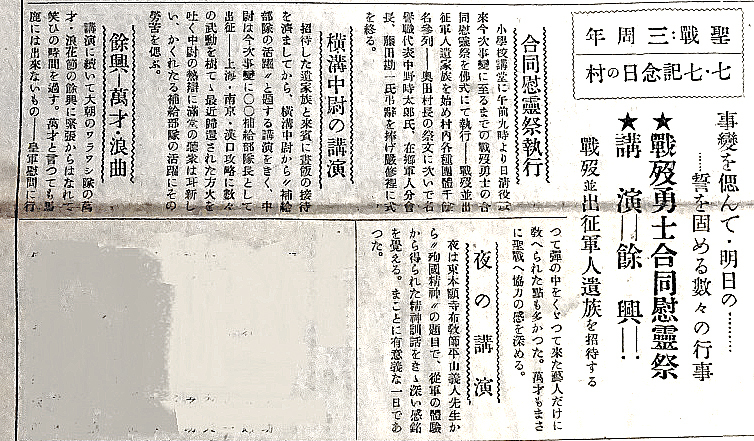 聖戰三周年
七・七記念日の村
事變を偲んで・明日の………
……誓を固める数々の行事
★戰歿勇士合同慰靈祭
★講演―餘興―!
戰歿並出征軍人遺族を招待する
合同慰靈祭執行
小學校講堂に午前九時より日清役以
来今次事變に至るまでの戰歿勇士の合
同慰靈祭を佛式にて執行――戰歿並出
征軍人遺家族を始め村内各種團體千餘
名參列――奥田村長の祭文に次いで名
譽職代表中野時太郎氏、在郷軍人分會
長、藤田勘一氏弔辭を捧げ嚴修裡に式
を終る。
横溝中尉の講演
招待した遺家族と來賓に晝飯の接待
を濟ましてから、横溝中尉から〃補給
部隊の活躍〃と題する講演をきく、中
尉は今次事變に〇〇補給部隊長として
出征――上海・南京・漢口攻略に數々
の武勳を樹て、最近歸還された方火を
吐く中尉の熱辯に滿堂の聽衆は耳新し
い、かくれたる補給部隊の活躍にその
勞苦を偲ぶ。
餘興―萬才・浪曲
講演に續いて大朝のワラワシ隊の萬
才、浪花節の餘興に緊張からはなれて
笑ひの時間を過す。萬才と言つても馬
鹿には出來ないもの――皇軍慰問に行
つて彈の中をくゞつて来た藝人だけに
敎へられた點も多かつた。萬才もまさ
に聖戰へ協力の感を深める。
夜の講演
夜は東本願寺布敎師平山義人先生か
ら〃殉國精神〃の題目で、從軍の體驗
から得られた精神訓話をきゝ深い感銘
を覺える。まことに有意義な一日であ
つた。